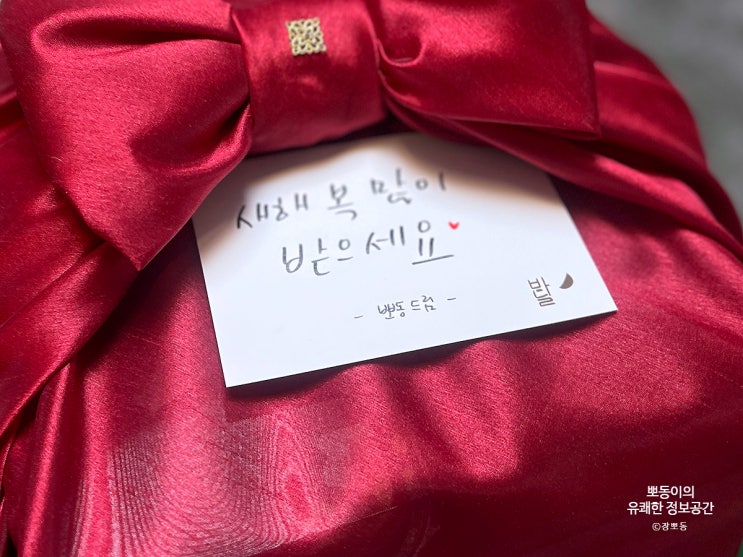 새해 복 많이
받으세요
- 뽀동드림 -
반달
뽀동이의
유쾌한 정보공간
©장뽀동